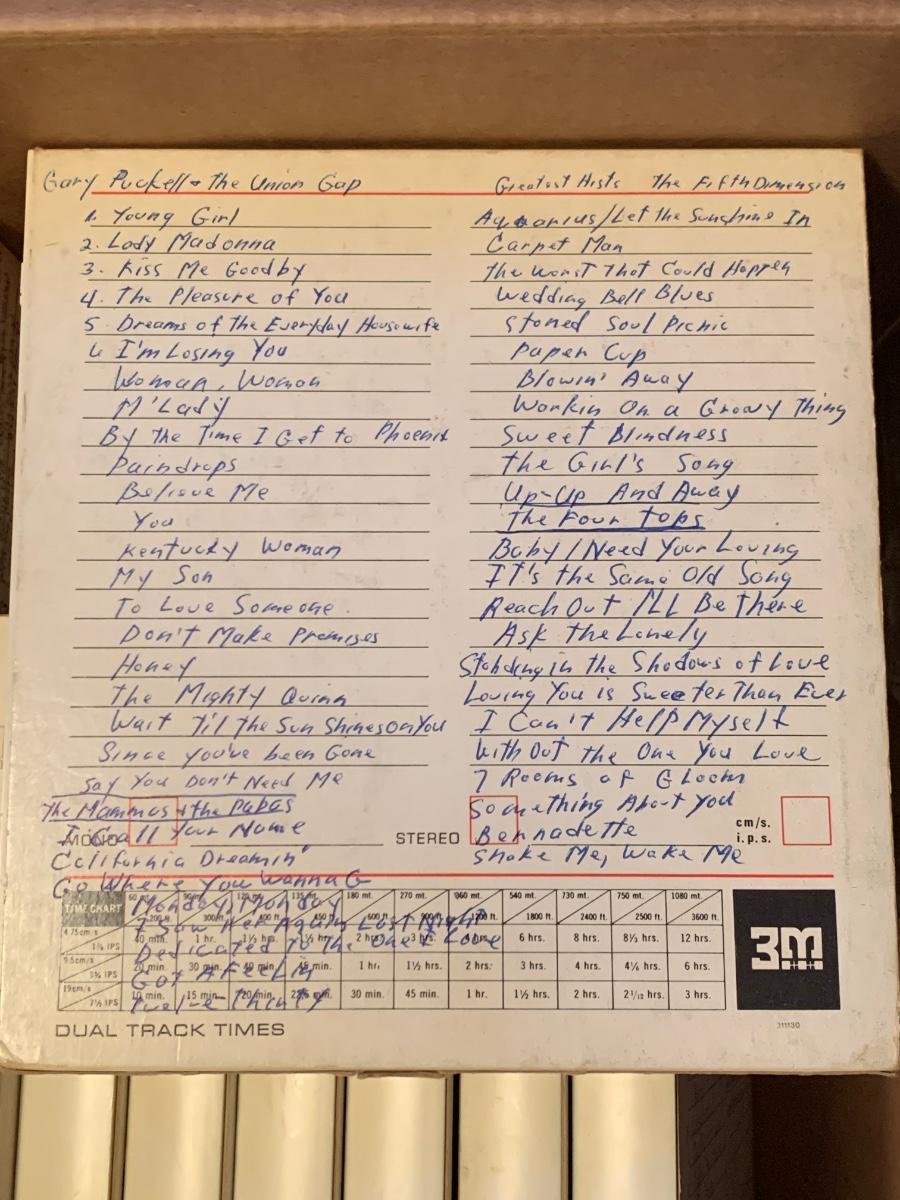 Gary Puckett & The Union Gap
1. Young Girl
2. Lady Madonna
3. Kiss Me Goodby
4. The Pleasure of You
5. Dreams of the Everyday Housewife
6 I'm Losing You
Woman, Woman
M'Lady
By the Time I Get to Phoenix
Raindrops
Believe Me
You
Kentucky Woman
My Son
To Love Someone.
Don't Make Promises
Honey
The Mighty Quinn
Wait Til the Sun Shines on You
Since you've been Gone
Say You Don't Need Me
The Mammas & the Papas
I Call Your Name
California Dreamin'
Go Where You Wanna G
Monday, Monday
I Saw Her Again Last Night
Dedicated To The One I Love
Got A Feelin
Twelve Thirty
Greatest Hists The Fifth Dimension
Aquarius/Let the Sunshine In
Carpet Man
The Worst That Could Happen
Wedding Bell Blues
Stoned Soul Picnic
Paper Cup
Blowin' Away
Workin On a Groovy Thing
Sweet Blindness
The Girl's Song
Up-Up And Away
The Four Tops
Baby I Need Your Loving
IT's the Same Old Song
Reach Out I'LL Be There
Ask the Lonely
Standing in the Shadows of Love
Loving You is Sweeter Than Ever
I Can't Help Myself
Without the One You Love
7 Rooms of Gloom
Something About You
Bernadette
Shake Me, Wake Me
MONO
STEREO
cm/s.
i.p.s.
TIME CHART
180 mt. 270 mt. 360 mt. 540 mt. 730 mt. 750 mt. 1080 mt.
200 ft. 300 ft. 400 ft. 450 ft. 600 ft. 900 ft. 1200 ft. 1800 ft. 2400 ft. 2500 ft. 3600 ft.
4.75cm/s 1⅞ IPS 40 min. 1 hr. 1½ hrs. 2 hrs. 3 hrs. 6 hrs. 8 hrs. 8⅓ hrs. 12 hrs.
9.5cm/s 3¾ IPS 20 min. 30 min. 40 min. 45 min. 1 hr. 1½ hrs. 2 hrs. 3 hrs. 4 hrs. 4⅙ hrs. 6 hrs.
19cm/s 7½ IPS 10 min. 15 min. 20 min. 22½ min. 30 min. 45 min. 1 hr. 1½ hrs. 2 hrs. 2¹/₁₂ hrs. 3 hrs.
DUAL TRACK TIMES
3M
311130